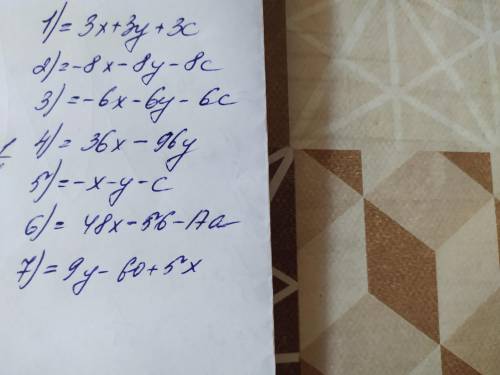 1) = 3x+3y+3c
2) = -8x-8y-8c
3) = -6x-6y-6c
4) = 36x-96y
5) = -x-y-c
6) = 48x-56-17a
7) = 9y-60+5x